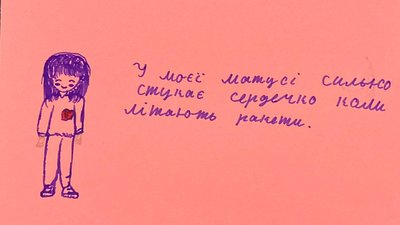 У моєї матусі сильно
стукає сердечко коли
літають ракети.